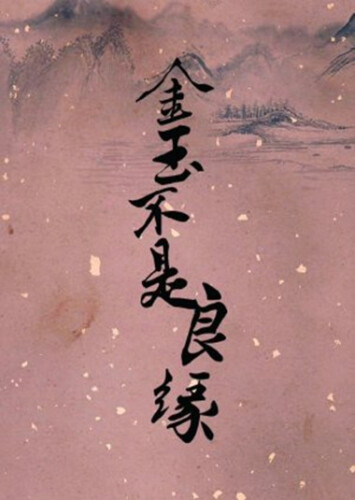 金玉不是良缘